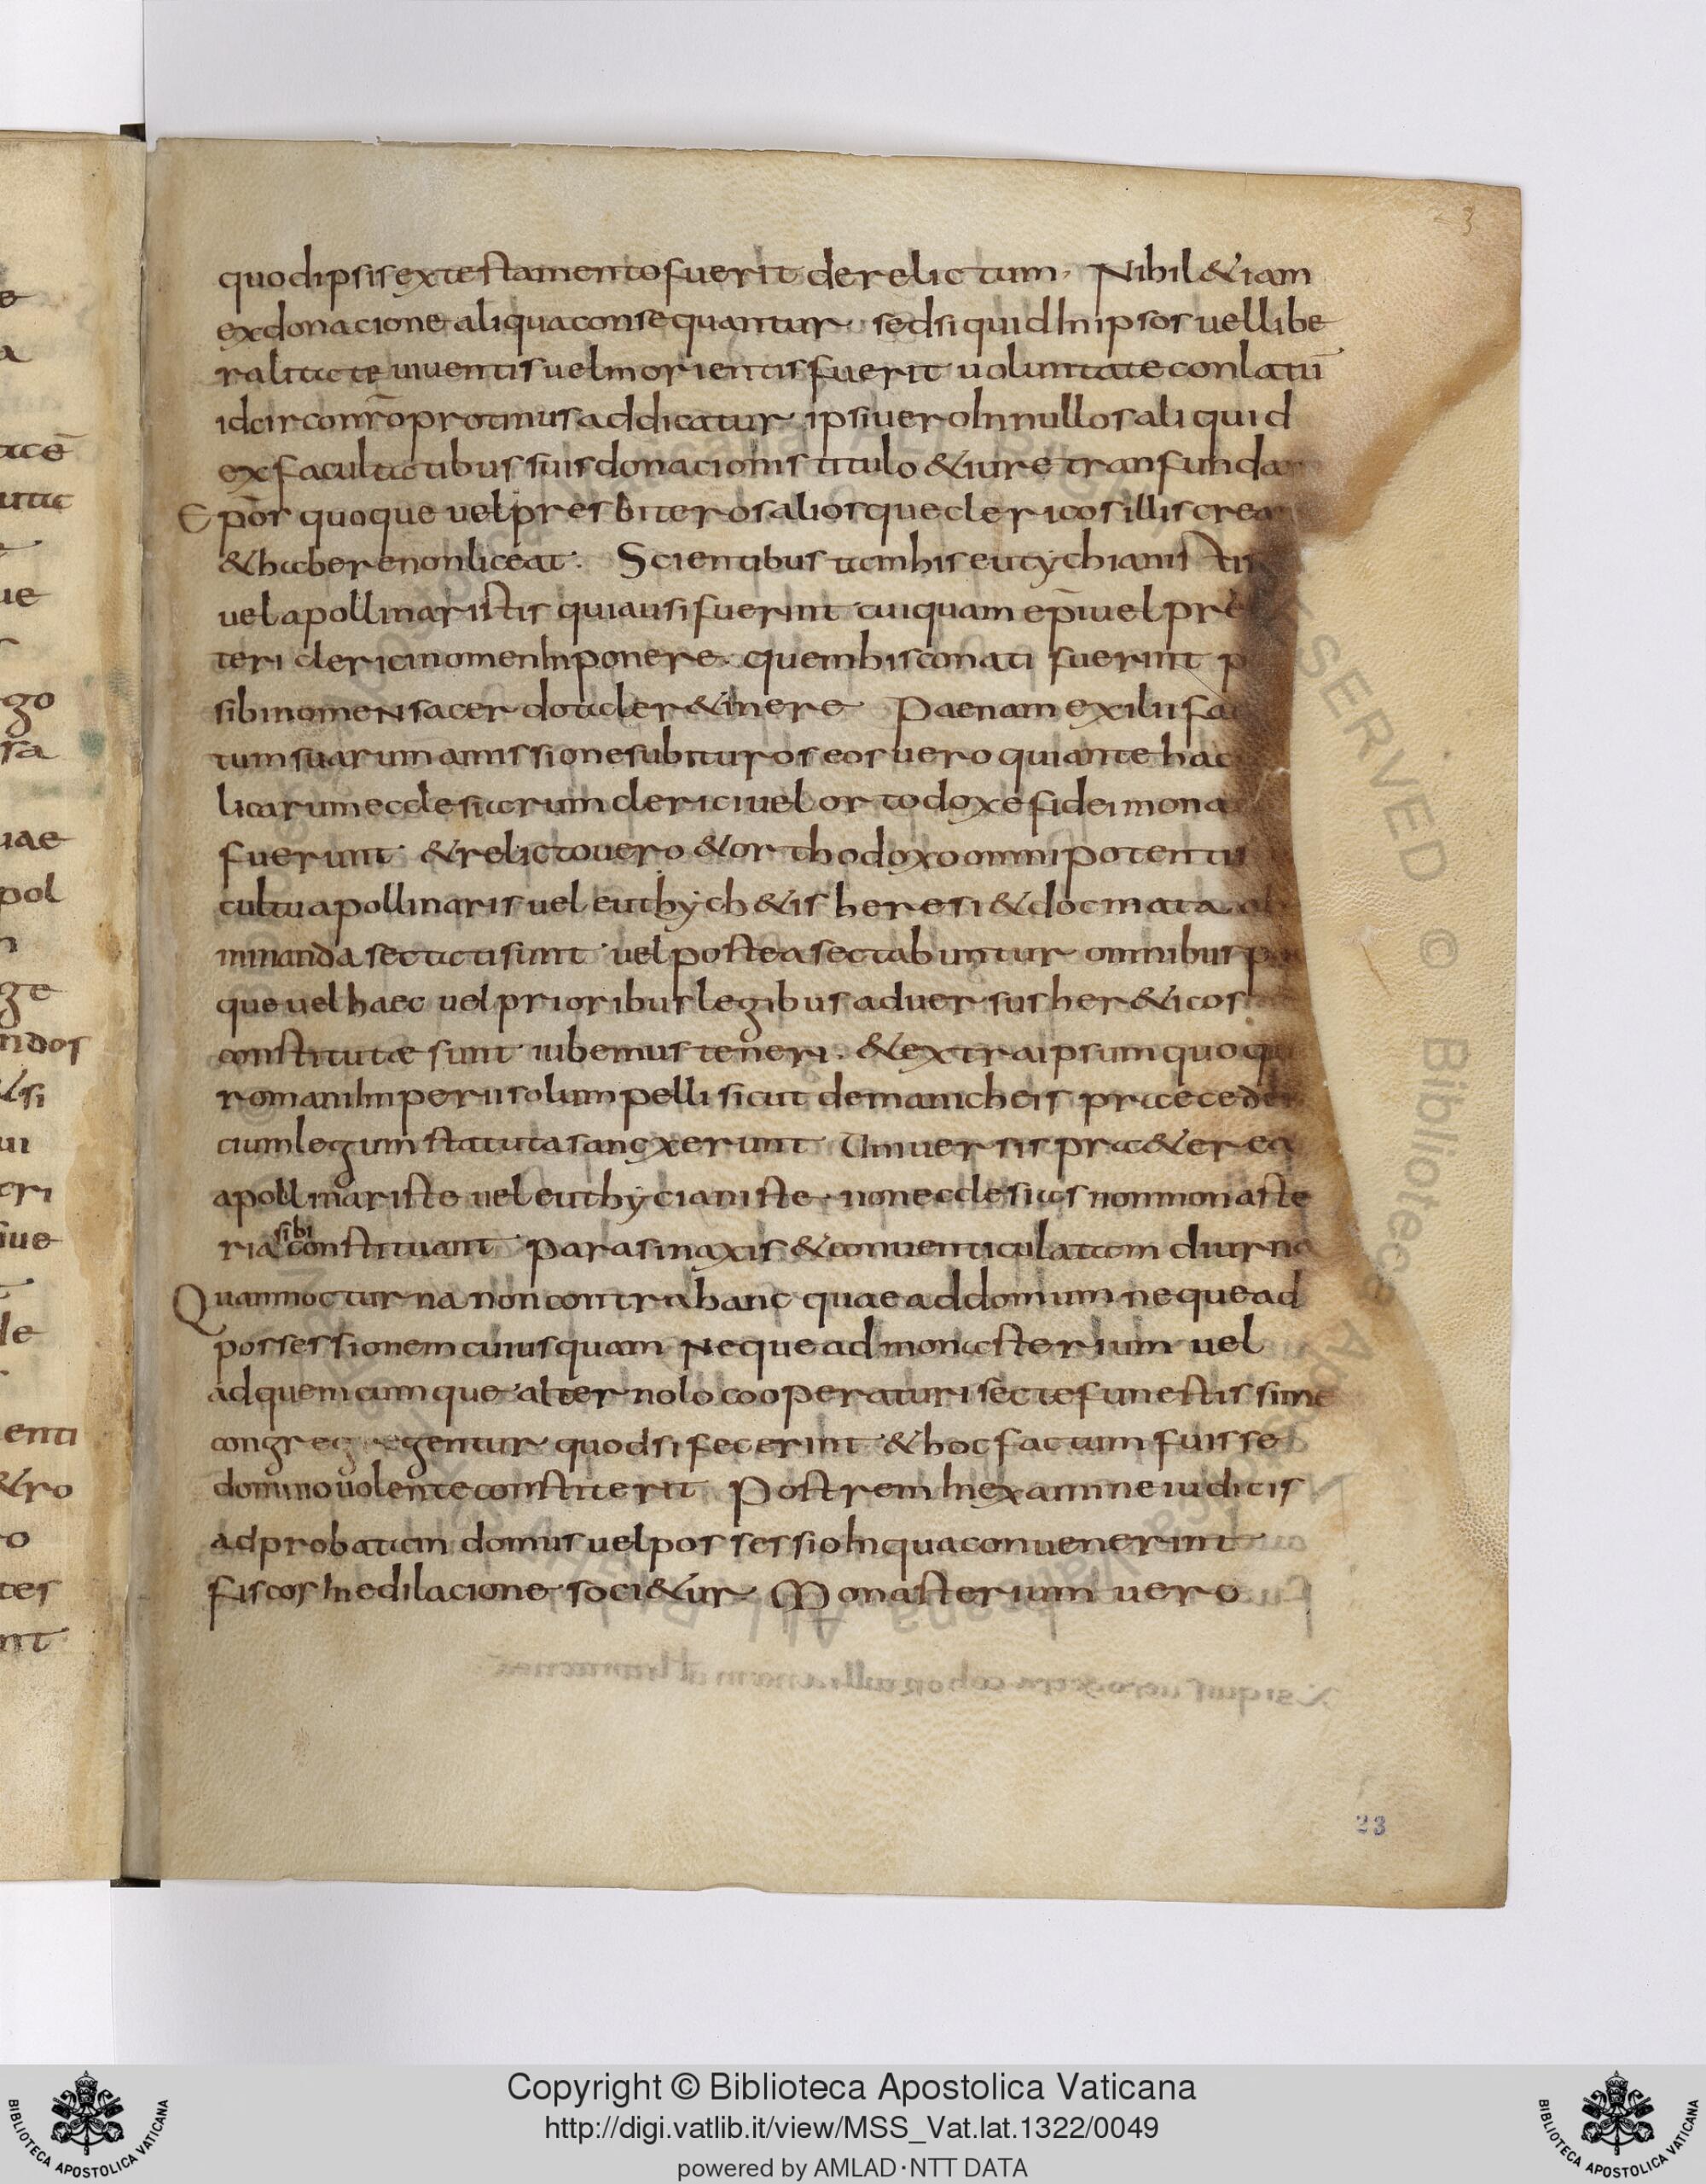 quod ipsis ex testamento fuerit derelictum. Nihil & iam
ex donacione aliqua consequantur. sed si quid In ipsos uel libe
ralitate uiuentis uel morientis fuerit uoluntate conlatū
id circo nr̄o protinus addicatur. ipsi uero In nullos aliquid
ex facultatibus suis donacionis titulo & iure tranfundan
Ep̄os quoque uel presbiteros aliosque clericos illis crea
& habere non liceat. Scientibus tam his eutychianistis
uel apollinaristis qui ausi fuerint cuiquam ep̄i uel pre
teri clerici nomen Inponere. quem his conati fuerint
sibi nomen sacerdotale r&inere Paenam exilii fac
tum suarum amissione subituros eos uero qui ante hac
licarum ecclesiarum clerici uel ortodoxe fidei mona
fuerunt & relicto uero & orthodoxo omnipotentis
cultu apollinaris uel euthych&is heresi & docmata ab
minanda sectati sunt uel postea sectabuntur omnibus
que uel haec uel prioribus legibus aduersus her&icos
constitutæ sunt iubemus teneri. & extra ipsum quoque
romani Imperii solum pelli sicut de manicheis præceden
cium legum statuta sancxerunt Uniuersis præ&erea
apollinariste uel euthycianiste. non ecclesias non monaste
ria sibi constituant parasinaxis & conuenticula tam diurna
Quam nocturna non contrahant quae ad domum neque ad
possessionem cuiusquam Neque ad monasterium uel
ad quemcumque alter nolo cooperaturi secte funestissime
congreg gentur quod si fecerint & hoc factum fuisse
domino uolente constiterit Postrem In examine iudicis
adprobatam domus uel possessio In qua conuenerint
fiscos Ine dilacione soci&ur Monasterium uero
23
23
Copyright © Biblioteca Apostolica Vaticana
http://digi.vatlib.it/view/MSS_Vat.lat.1322/0049
powered by AMLAD·NTT DATA
BIBLIOTECA APOSTOLICA VATICANA
BIBLIOTECA APOSTOLICA VATICANA